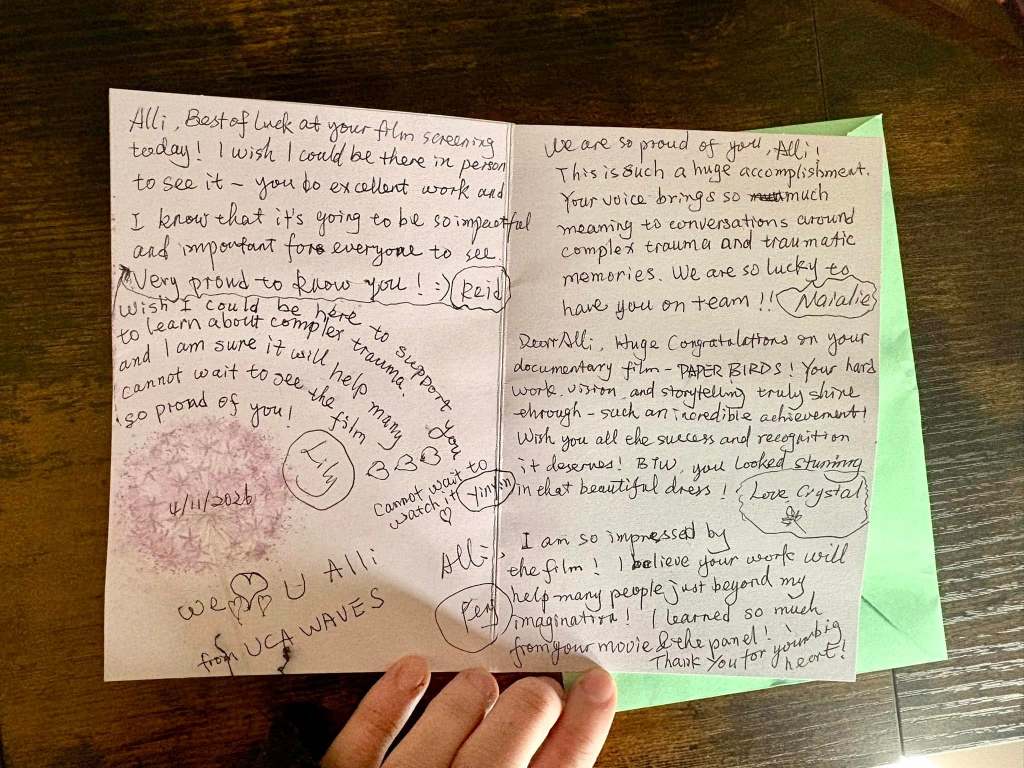 Alli, Best of Luck at your film screening
today! I wish I could be there in person
to see it – you do excellent work and
I know that it's going to be so impactful
and important for everyone to see.
Very proud to know you! :) Reid
Wish I could be here to support you
to learn about complex trauma.
and I am sure it will help many
cannot wait to see the film
so proud of you!
Lily
Cannot wait to
watch it
Yinyin
4/11/2026
We U Alli
from UCA WAVES
We are so proud of you, Alli!
This is such a huge accomplishment.
Your voice brings so much
meaning to conversations around
complex trauma and traumatic
memories. We are so lucky to
have you on team!! Natalie
Dear Alli, Huge Congratulations on your
documentary film – PAPER BIRDS! Your hard
work, vision, and storytelling truly shine
through – such an incredible achievement!
Wish you all the success and recognition
it deserves! BTW, you looked stunning
in that beautiful dress! Love Crystal
Alli,
I am so impressed by
the film! I believe your work will
help many people just beyond my
imagination! I learned so much
from your movie & the panel!
Thank you for your big
heart!